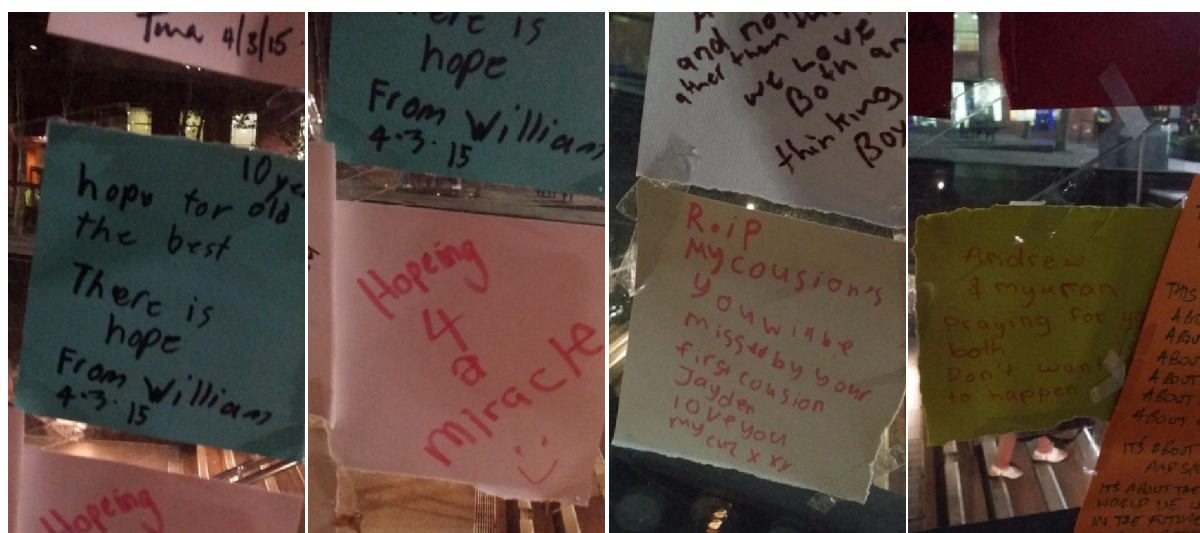 Tina 4/3/15.
10 ye
hope for old
the best
There is
hope
From William
4.3.15
Hopeing
There is
hope
From William
4.3.15
Hopeing
4
a
miracle
and no
other than
we love
Both an
thinking
Boy
R.i.P
My cousion's
you win be
missed by your
first cousion
Jayden
love you
my cuz x xx
Andrew
& myuran
Praying for yo
both
Don't want
to happen
THIS
ABO
ABOU
ABOUT
ABOUT
ABOUT
ABOUT
IT'S ABOUT
AND S
IT'S ABOUT THE
WORLD WE L
IN THE FUTURE